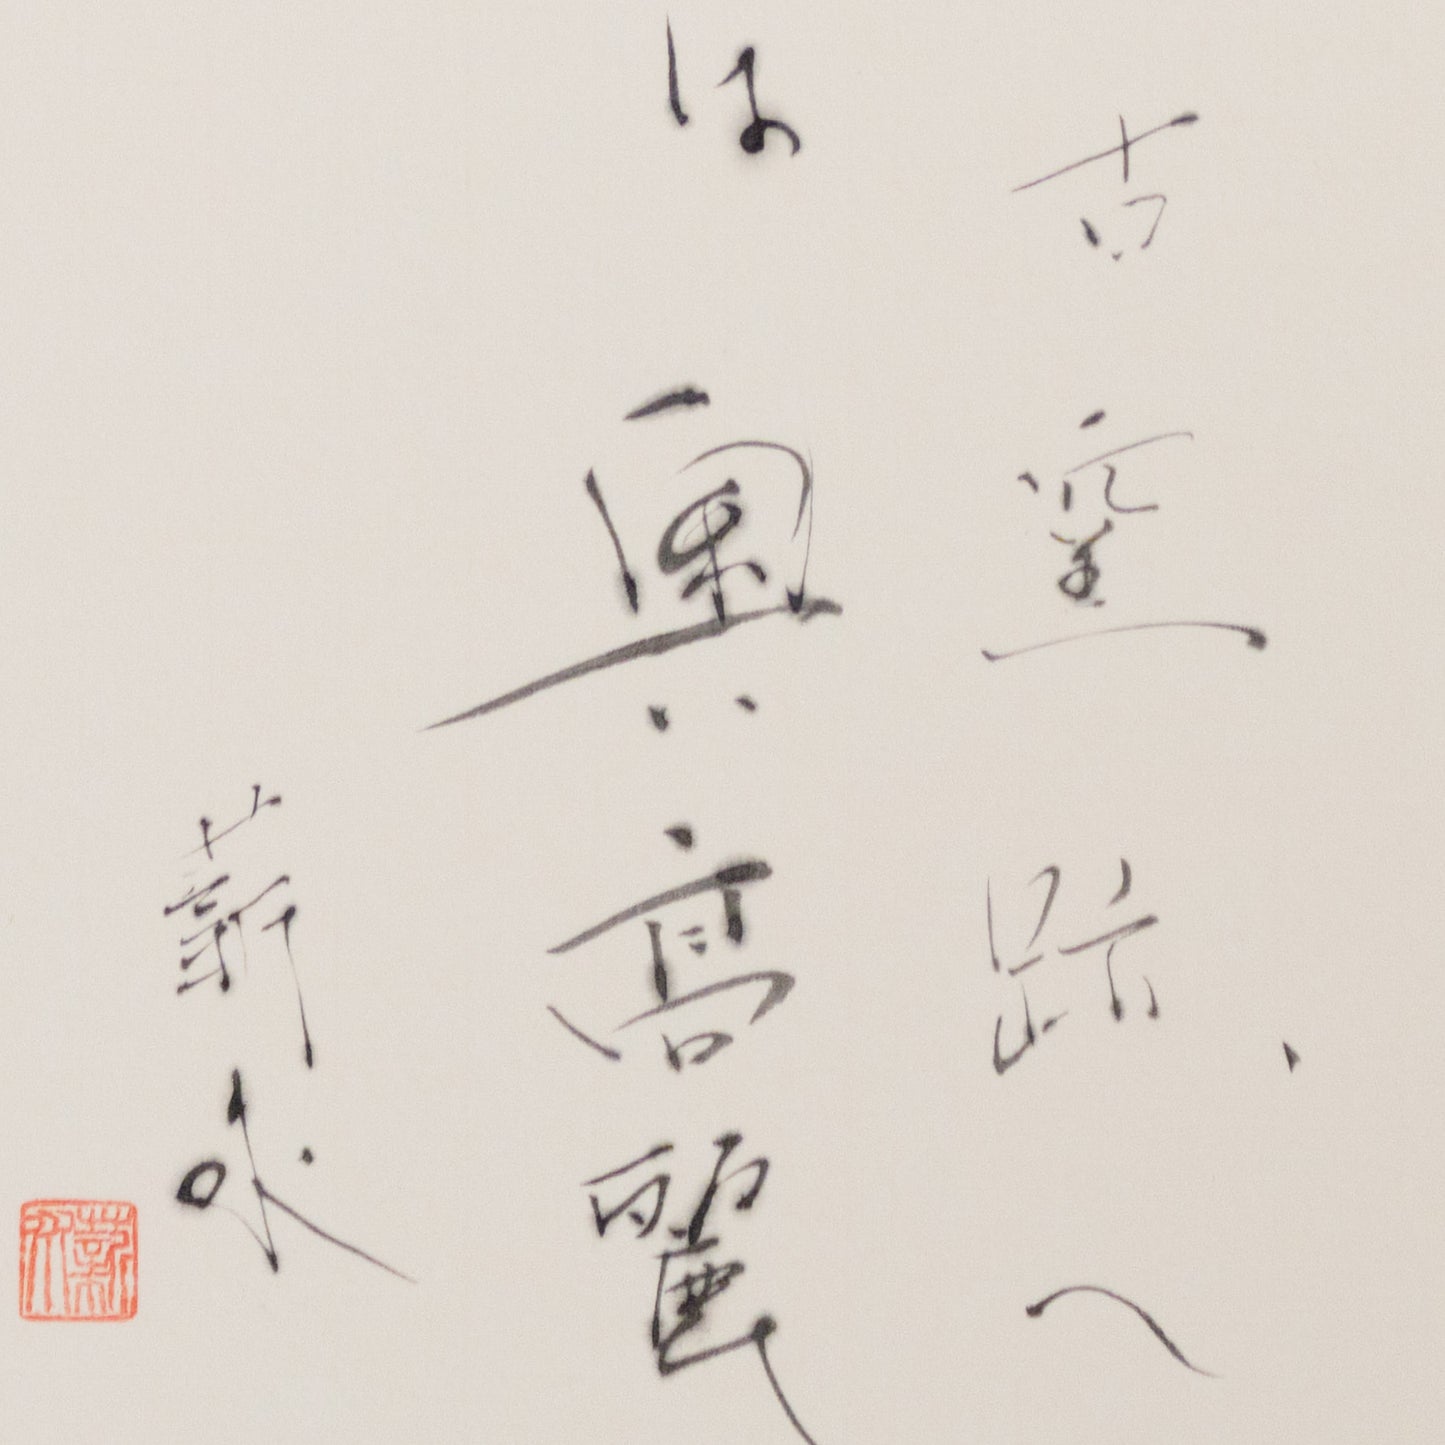 古窯跡、へ
は奥高麗
薪水